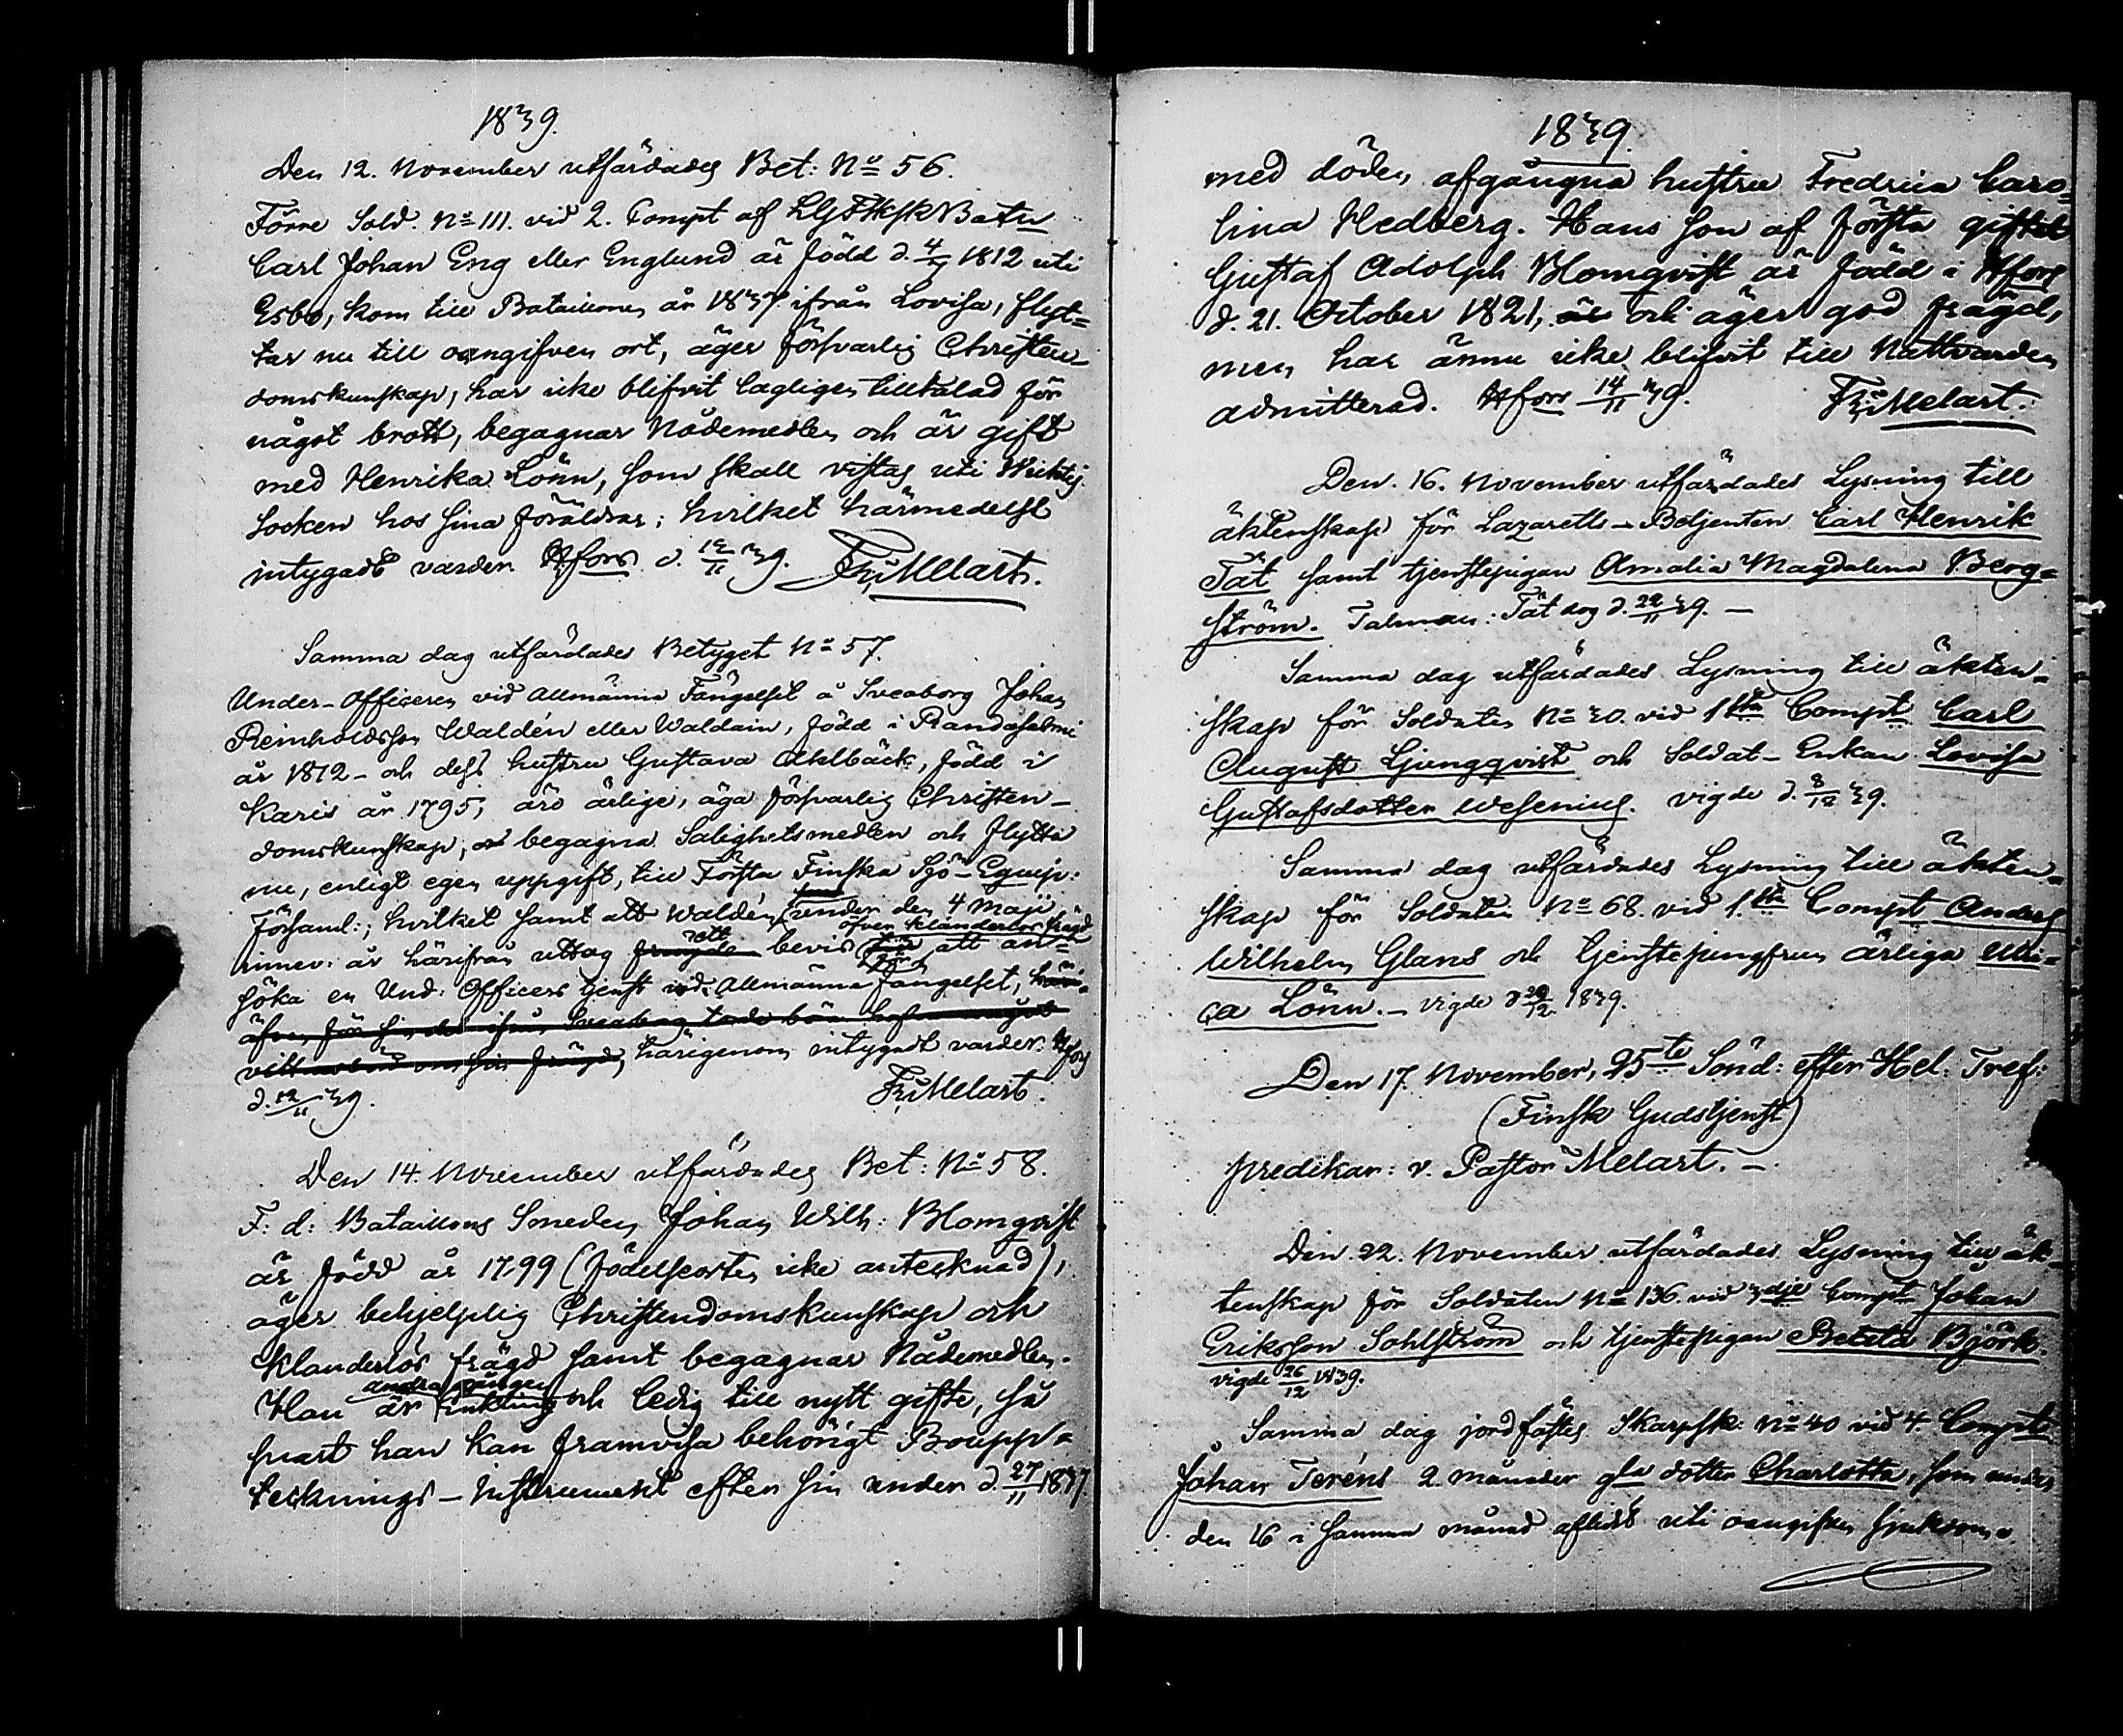 1839.
Den 12. November utfärdades Bet: No 56.
Förre Sold. No 111. vid 2. Compt af LGFskSkBatn
Carl Johan Eng eller Englund är född d. 4/7 1812 uti
Esbo, kom till Bataillonen år 1837 ifrån Lovisa, flyt=
tar nu till oangifven ort, äger försvarlig Christen-
domskunskap, har icke blifvit lagligen tilltalad för
något brott, begagnar Nådemedlen och är gift
med Henrika Lönn, som skall vistas uti Wichtis
Socken hos sina föräldrar; hvilket härmedelst
intygadt varder. Hfors d. 12/11 39. Fr: Melart.
Samma dag utfärdades Betyget No 57.
Under-Officeren vid Allmänna Fängelset å Sveaborg Johan
Reinholdsson Waldén eller Waldain, född i Randasalmi
år 1812 - och dess hustru Gustava Ahlbäck, född i
Karis år 1795, äro ärlige, äga försvarlig Christen-
domskunskap, begagna Salighetsmedlen och flytta
nu, enligt egen uppgift, till Första Finska Sjö-Equip:
Församl:; hvilket samt att Waldén under den 4 Maji
öfver klanderlös frägd
innev: år härifrån uttog ett bevis för att an-
söka en Und: Officers tjenst vid Allmänna fängelset,
härigenom intygadt varder. Hfors
d. 12/11 39. Fr: Melart.
Den 14. November utfärdades Bet: No 58.
F: d: Bataillons Smeden Johan Wilh: Blomqvist
är född år 1799 (födelseorten icke antecknad),
äger behjelplig Christendomskunskap och
klanderlös frägd samt begagnar Nådemedlen.
andra gången
Han är Enkling och ledig till nytt gifte, så
snart han kan framvisa behörigt Boupp=
tecknings-Instrument efter sin under d. 27/11 1837
1839.
med döden afgångna hustru Fredrica Caro=
lina Hedberg. Hans son af första giftet
Gustaf Adolph Blomqvist är född i Hfors
d. 21. October 1821, och äger god frägd,
men har ännu icke blifvit till Nattvarden
admitterad. Hfors 14/11 39. Fr: Melart.
Den 16. November utfärdades Lysning till
äktenskap för Lazaretts-Betjenten Carl Henrik
Tät samt tjenstepigan Amalia Magdalena Berg=
ström. Talman: Tät dog d. 22/11 39. -
Samma dag utfärdades Lysning till äkten=
skap för Soldaten No 30. vid 1sta Compt Carl
August Ljungqvist och Soldat-Enkan Lovisa
Gustafsdotter Wesenius. vigde d. 8/12 39.
Samma dag utfärdades Lysning till äkten=
skap för Soldaten No 68. vid 1.sta Compt Anders
Wilhelm Glans och tjenstejungfrun ärliga Ulri=
ca Lönn. - vigde d 29/12 1839.
Den 17. November, 25te Sönd: efter Hel. Tref:
(Finsk Gudstjenst)
predikar: v. Pastor Melart. -
Den 22. November utfärdades Lysning till äk-
tenskap för Soldaten No 136. vid 3dje Compt Johan
Eriksson Sohlström och tjenstepigan Beata Björk.
vigde 26/12 1839.
Samma dag jordfästes Skarpsk: No 40 vid 4. Compt
Johan Teréns 2. månader gla dotter Charlotta, som under
den 16 i samma månad aflidit uti oangifven sjukdom.